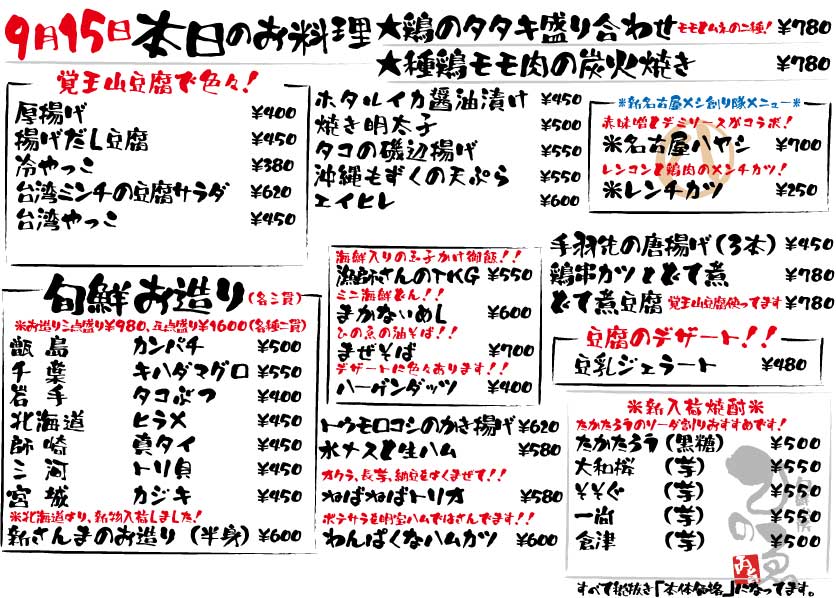 9月15日 本日のお料理
★鶏のタタキ盛り合わせ モモとムネの二種! ¥780
★種鶏モモ肉の炭火焼き ¥780
覚王山豆腐で色々!
厚揚げ ¥400
揚げだし豆腐 ¥450
冷やっこ ¥380
台湾ミンチの豆腐サラダ ¥620
台湾やっこ ¥450
ホタルイカ醤油漬け ¥450
焼き明太子 ¥500
タコの磯辺揚げ ¥550
沖縄もずくの天ぷら ¥550
エイヒレ ¥600
※新名古屋メシ創り隊メニュー※
赤味噌とデミソースがコラボ!
※名古屋ハヤシ ¥700
レンコンと鶏肉のメンチカツ!
※レンチカツ ¥250
旬鮮お造り(各三貫)
※お造り三点盛り¥980、五点盛り¥1600(各種二貫)
甑島 カンパチ ¥500
千葉 キハダマグロ ¥550
岩手 タコぶつ ¥400
北海道 ヒラメ ¥450
師崎 真タイ ¥450
三河 トリ貝 ¥450
宮城 カジキ ¥450
※北海道より、新物入荷しました!
新さんまのお造り(半身) ¥600
海鮮入りの玉子かけ御飯!!
漁師さんのTKG ¥550
ミニ海鮮どん!!
まかないめし ¥600
ひの魚の油そば!!
まぜそば ¥700
デザートに色々あります!!
ハーゲンダッツ ¥400
トウモロコシのかき揚げ ¥620
水ナスと生ハム ¥580
オクラ、長芋、納豆をよくまぜて!!
ねばねばトリオ ¥580
ポテサラを明宝ハムではさんでます!!
わんぱくなハムカツ ¥500
手羽先の唐揚げ(3本) ¥450
鶏串カツとどて煮 ¥780
どて煮豆腐 覚王山豆腐使ってます ¥780
豆腐のデザート!!
豆乳ジェラート ¥480
※新入荷焼酎※
たかたろうのソーダ割りおすすめです!
たかたろう(黒糖) ¥500
大和桜(芋) ¥550
¥¥ぐ(芋) ¥500
一尚(芋) ¥500
倉津(芋) ¥500
すべて税抜き「本体価格」になってます。